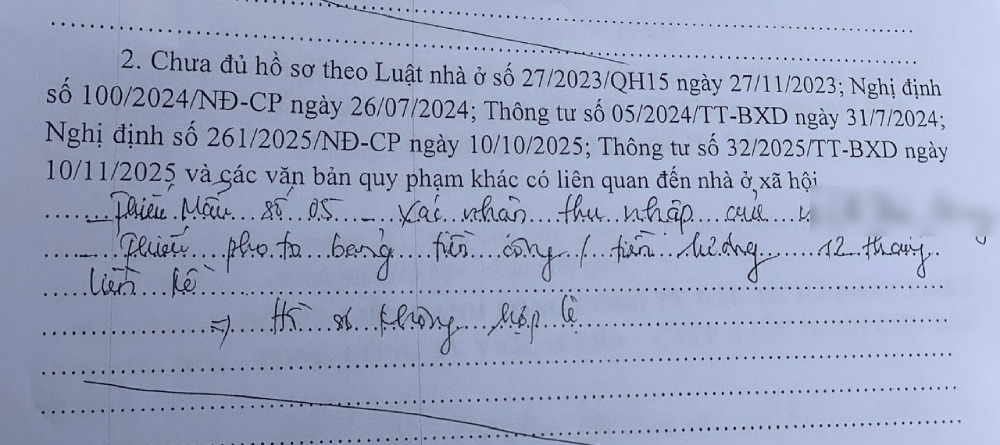 2. Chưa đủ hồ sơ theo Luật nhà ở số 27/2023/QH15 ngày 27/11/2023; Nghị định
số 100/2024/NĐ-CP ngày 26/07/2024; Thông tư số 05/2024/TT-BXD ngày 31/7/2024;
Nghị định số 261/2025/NĐ-CP ngày 10/10/2025; Thông tư số 32/2025/TT-BXD ngày
10/11/2025 và các văn bản quy phạm khác có liên quan đến nhà ở xã hội
- Thiếu Mẫu số 05 - xác nhận thu nhập của
- Thiếu photo bảng tiền công / tiền lương 12 tháng
liền kề
=> Hồ sơ không hợp lệ